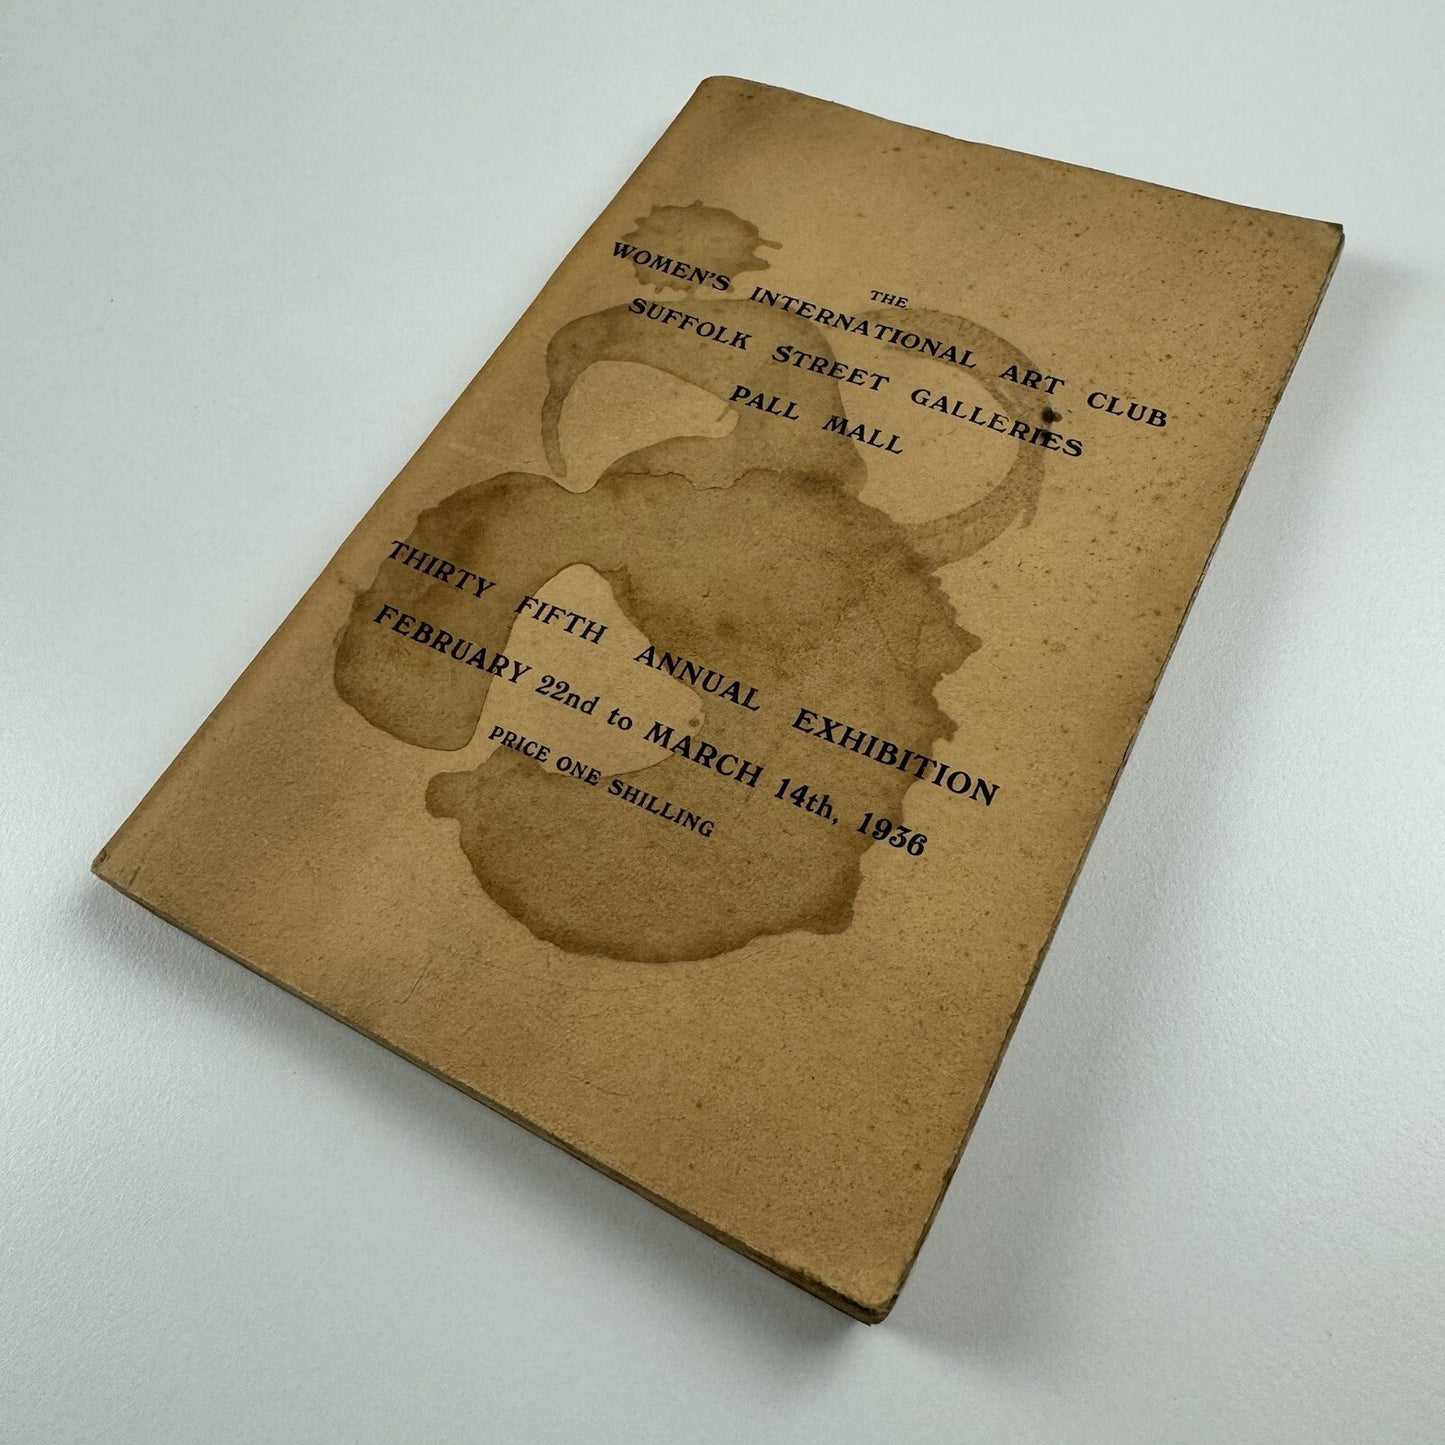 THE
WOMEN'S INTERNATIONAL ART CLUB
SUFFOLK STREET GALLERIES
PALL MALL
THIRTY FIFTH ANNUAL EXHIBITION
FEBRUARY 22nd to MARCH 14th, 1936
PRICE ONE SHILLING